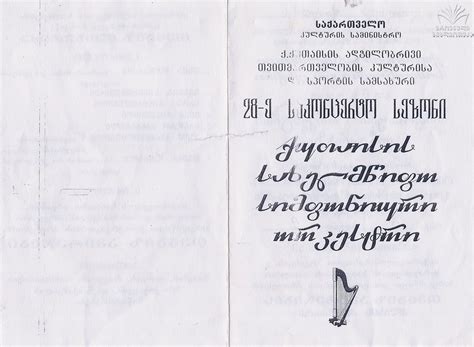 საქართველო
კულტურის სამინისტრო
ქ.ქუთაისის ადგილობრივი
თვითმმართველობის კულტურისა
და სპორტის სამსახური
28-ე საკონცერტო სეზონი
ქუთაისის
სახელმწიფო
სიმფონიური
ორკესტრი